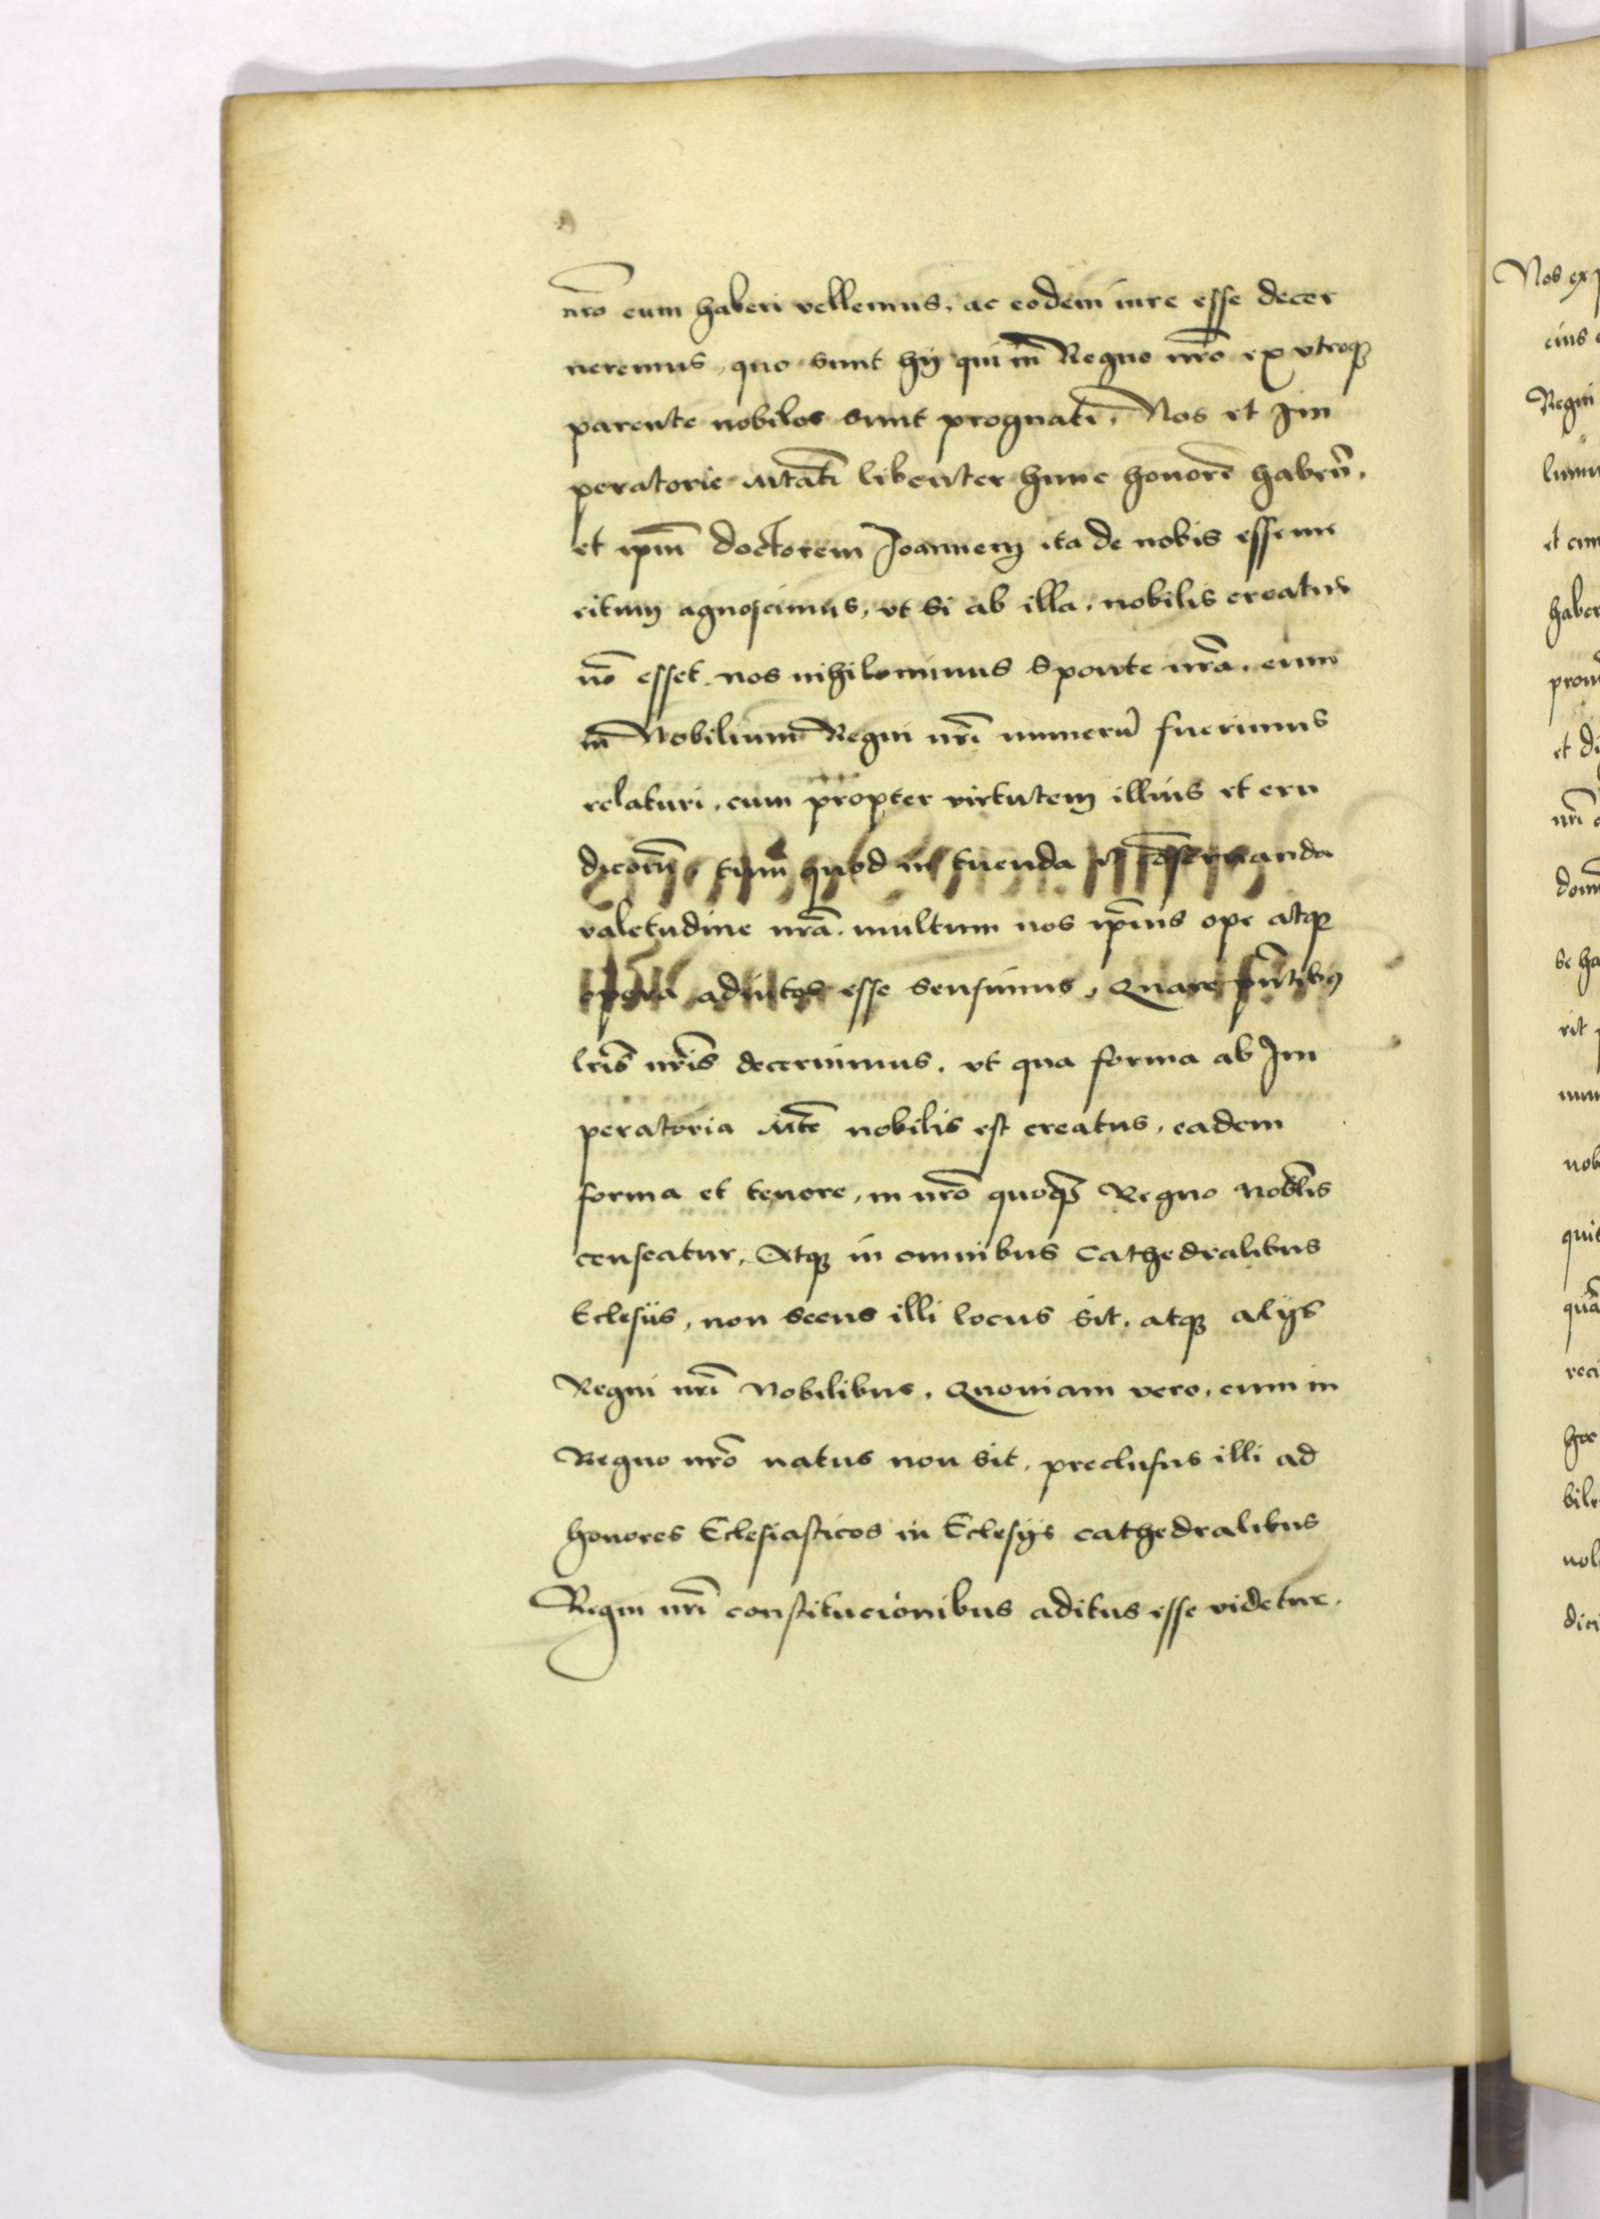 nro̅ eum haberi vellemus, ac eodem iure esse decer
neremus, quo sunt hij qui in̅ Regno nro̅ ex vtroqꝫ
parente nobiles sunt prognati. Nos et Im
peratorie Mtati̅ libenter hunc honore̅ habem̅,
et ipm̅ doctorem Joannem ita de nobis esse me
ritum agnoscimus, vt si ab illa, nobilis creatus
no̅ esset, nos nihilominus sponte nra̅, eum
in̅ Nobilium Regni nri̅ numeru̅ fuerimus
relaturi, cum propter virtutem illius et eru
dicom̅, tum quod in tuenda et co̅seruanda
valetudine nra̅, multum nos ipi̅us ope atqꝫ
opera adiutos esse sensimus, Quare pn̅tibꝰ
lris̅ nris̅ decernimus, vt qua forma ab Im
peratoria Mte̅ nobilis est creatus, eadem
forma et tenore, in nro̅ quoqꝫ Regno nobilis
censeatur, Atqꝫ in omnibus Cathedralibus
Eclesiis, non secus illi locus sit, atqꝫ alijs
Regni nri̅ Nobilibus, Quoniam vero, cum in
Regno nro̅ natus non sit, preclusus illi ad
honores Eclesiasticos in Eclesijs cathedralibus
Regni nri̅ constitucionibus aditus esse videtur.
Nos ex
eius
Regni
et
haber
et
nri̅
se ha
rit
nob
quis
qua̅
hoc